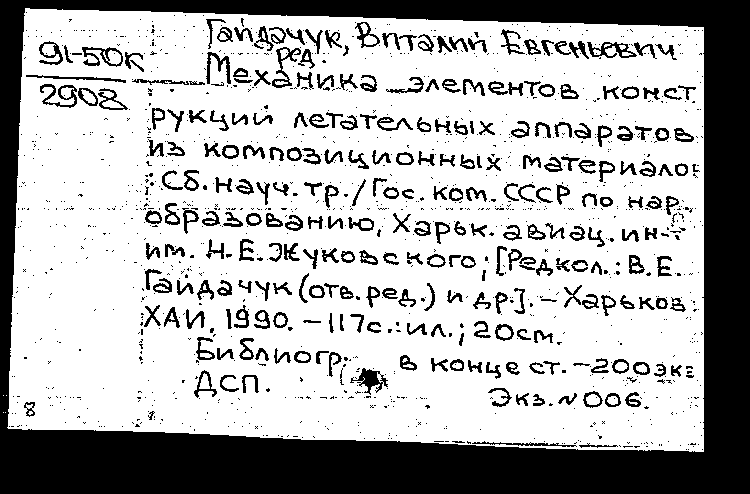 Гайдачук, Виталий Евгеньевич
ред.
91-50к
2908
Механика элементов конст
рукций летательных аппаратов
из композиционных материало
: Сб. науч. тр./Гос. ком. СССР по нар.
образованию, Харьк. авиац. ин-т
им. Н.Е.Жуковского; [Редкол.: В.Е.
Гайдачук (отв. ред.) и др.]. – Харьков:
ХАИ, 1990. – 117с.: ил.; 20см.
Библиогр. в конце ст. – 200 экз
ДСП. Экз. №006.
8